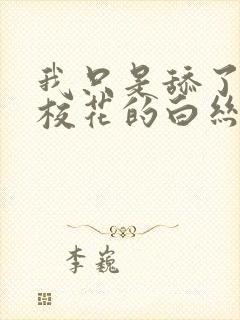 我只是舔了
校花的白丝
李巍